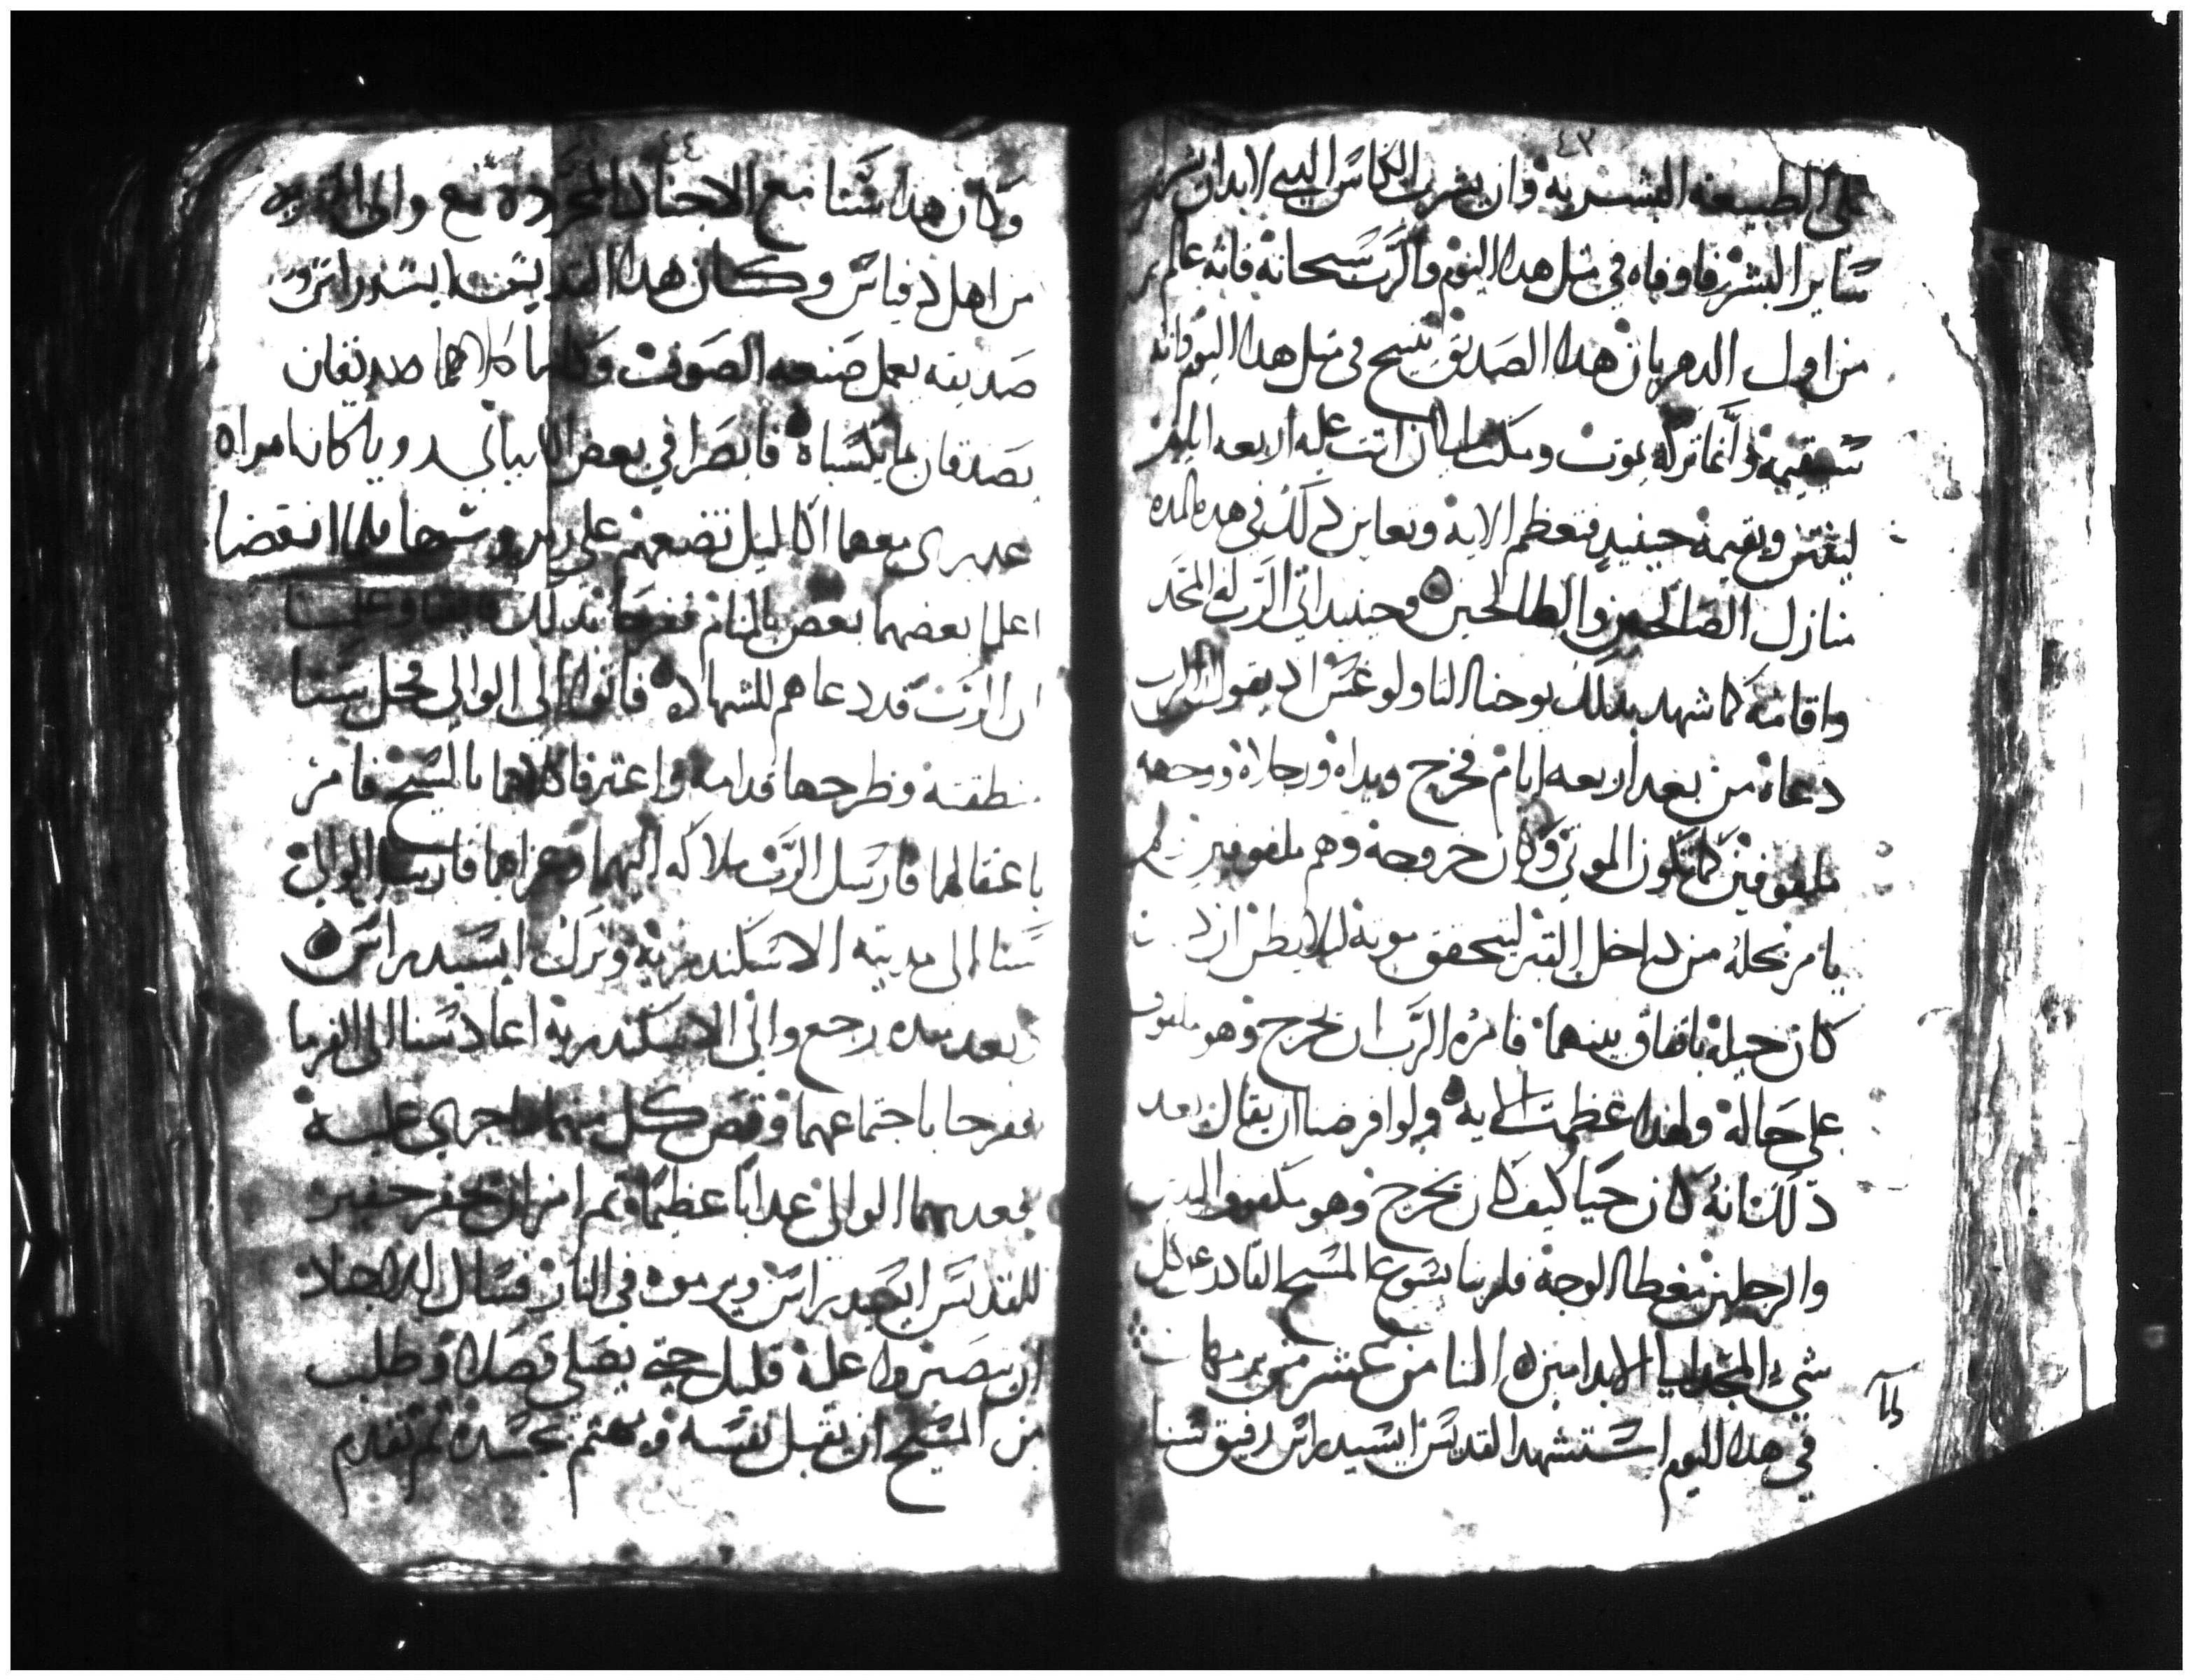 ٤٣
على الطبيعه البشريه وان يشرب الكاس الدي لابد ان يشربه
ساير البشر فاوفاه في مثل هدا اليوم والرب سبحانه فانه علم
من اول الدهر بان هدا الصديق يتنيح في مثل هدا اليوم وانه
سيقيمه وانما تركه يموت ومكث الى ان اتت عليه اربعه ايام
لينتن ويقيمه حينيد فتعظم الايه وتعاين دلك في هده المده
منازل الصالحين والطالحين وحينيد اتى الرب له المجد
واقامه كما شهد بدلك يوحنا التاولوغس اد يقول ان الرب
دعاه من بعد اربعه ايام فخرج ويداه ورجلاه ووجهه
ملفوفين كما تكون الموتى وكان خروجه وهم ملفوفين لم
يامر بحله من داخل القبر ليتحقق موته ليلا يظن ان د
كان حيله باتفاق بينهما فامره الرب ان يخرج وهو ملفوف
على حاله ولهدا عظمت الايه ولو افرضنا ان يقال بعد
دلك انه كان حيا كيف كان يخرج وهو ملفوف اليدين
والرجلين مغطا الوجه فلربنا يسوع المسيح القادر على كل
شي المجد الى الابد امين الثامن عشر من برمهات
في هدا اليوم استشهد القديس ايسيدراس رفيق سنا
٤٤
وكان هدا سنا مع الاجناد المجرده مع والى
من اهل دفياس وكان هدا القديس ايسيدراس
صديقه يعمل صنعه الصوف وكانا كلاهما صديقان
يصدقان بما يكسباه فابصرا في بعض الليالي رويا كان امراه
عدرى معها اكاليل تضعهم على روسهما فلما انقضا
اعلما بعضهما بعض بالمنام ففرحا بدلك
ان الرب قد دعاهم للشهاده فاتوا الى الوالي فحل سنا
منطقته وطرحها قدامه واعترفا كلاهما بالمسيح فامر
باعتقالهما فارسل الرب ملاكه اليهما وعزاهما فارسل الوالى
سنا الى مدينه الاسكندريه وترك ايسيدراس
وبعد مده رجع والي الاسكندريه اعاد سنا الى الفرما
ففرحا باجتماعهما وقص كل منهما ما جرى عليه
فعدبهما الوالي عدابا عظيما ثم امر ان يحفر حفير
للقديس ايسيدراس ويرموه في النار فسال الاجناد
ان يصبروا عليه قليل حتى يصلى فصلا وطلب
من المسيح ان يقبل نفسه ويهتم بجسده ثم تقدم